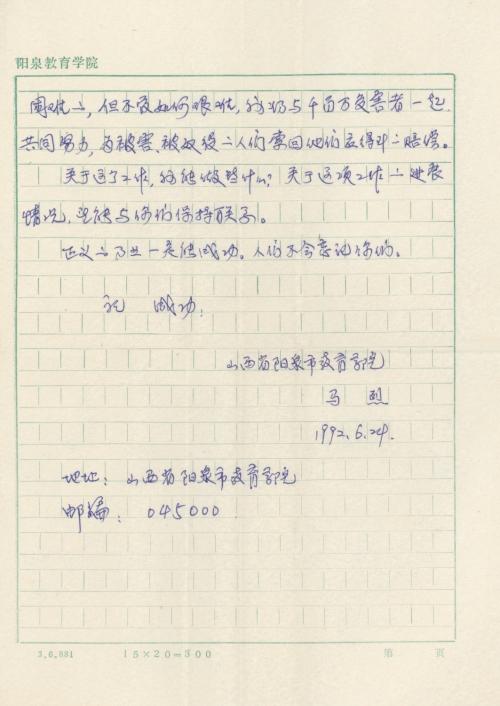 阳泉教育学院
困难的，但不管如何艰难，我们与千百万受害者一起
共同努力，为被害、被奴役的人们索回他们应得到的赔偿。
关于这个工作，我能做些什么？关于这项工作的进展
情况，望能与你们保持联系。
正义的事业一定能成功。人们不会忘记你们。
祝 成功！
山西省阳泉市教育学院
马烈
1992.6.24.
地址：山西省阳泉市教育学院
邮编：045000
3.6.881 15×20=300 第 页